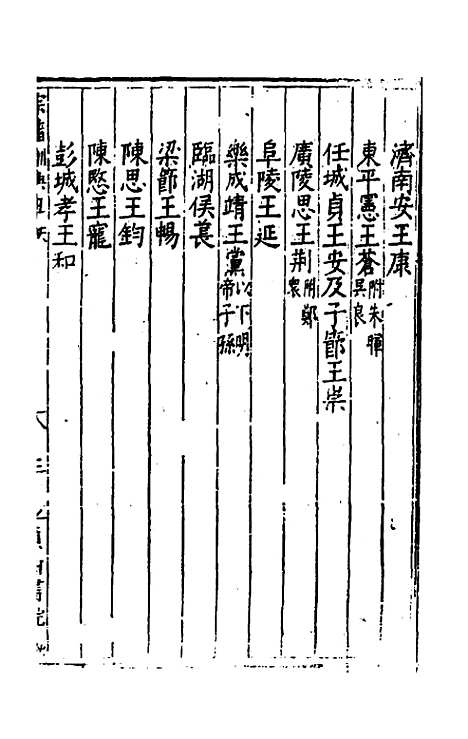 濟南安王康
東平憲王蒼附朱暉吳良
任城貞王安及子節王崇
廣陵思王荆附鄭衆
阜陵王延
樂成靖王黨以下明帝子孫
臨湖侯萇
梁節王暢
陳思王鈞
陳愍王寵
彭城孝王和